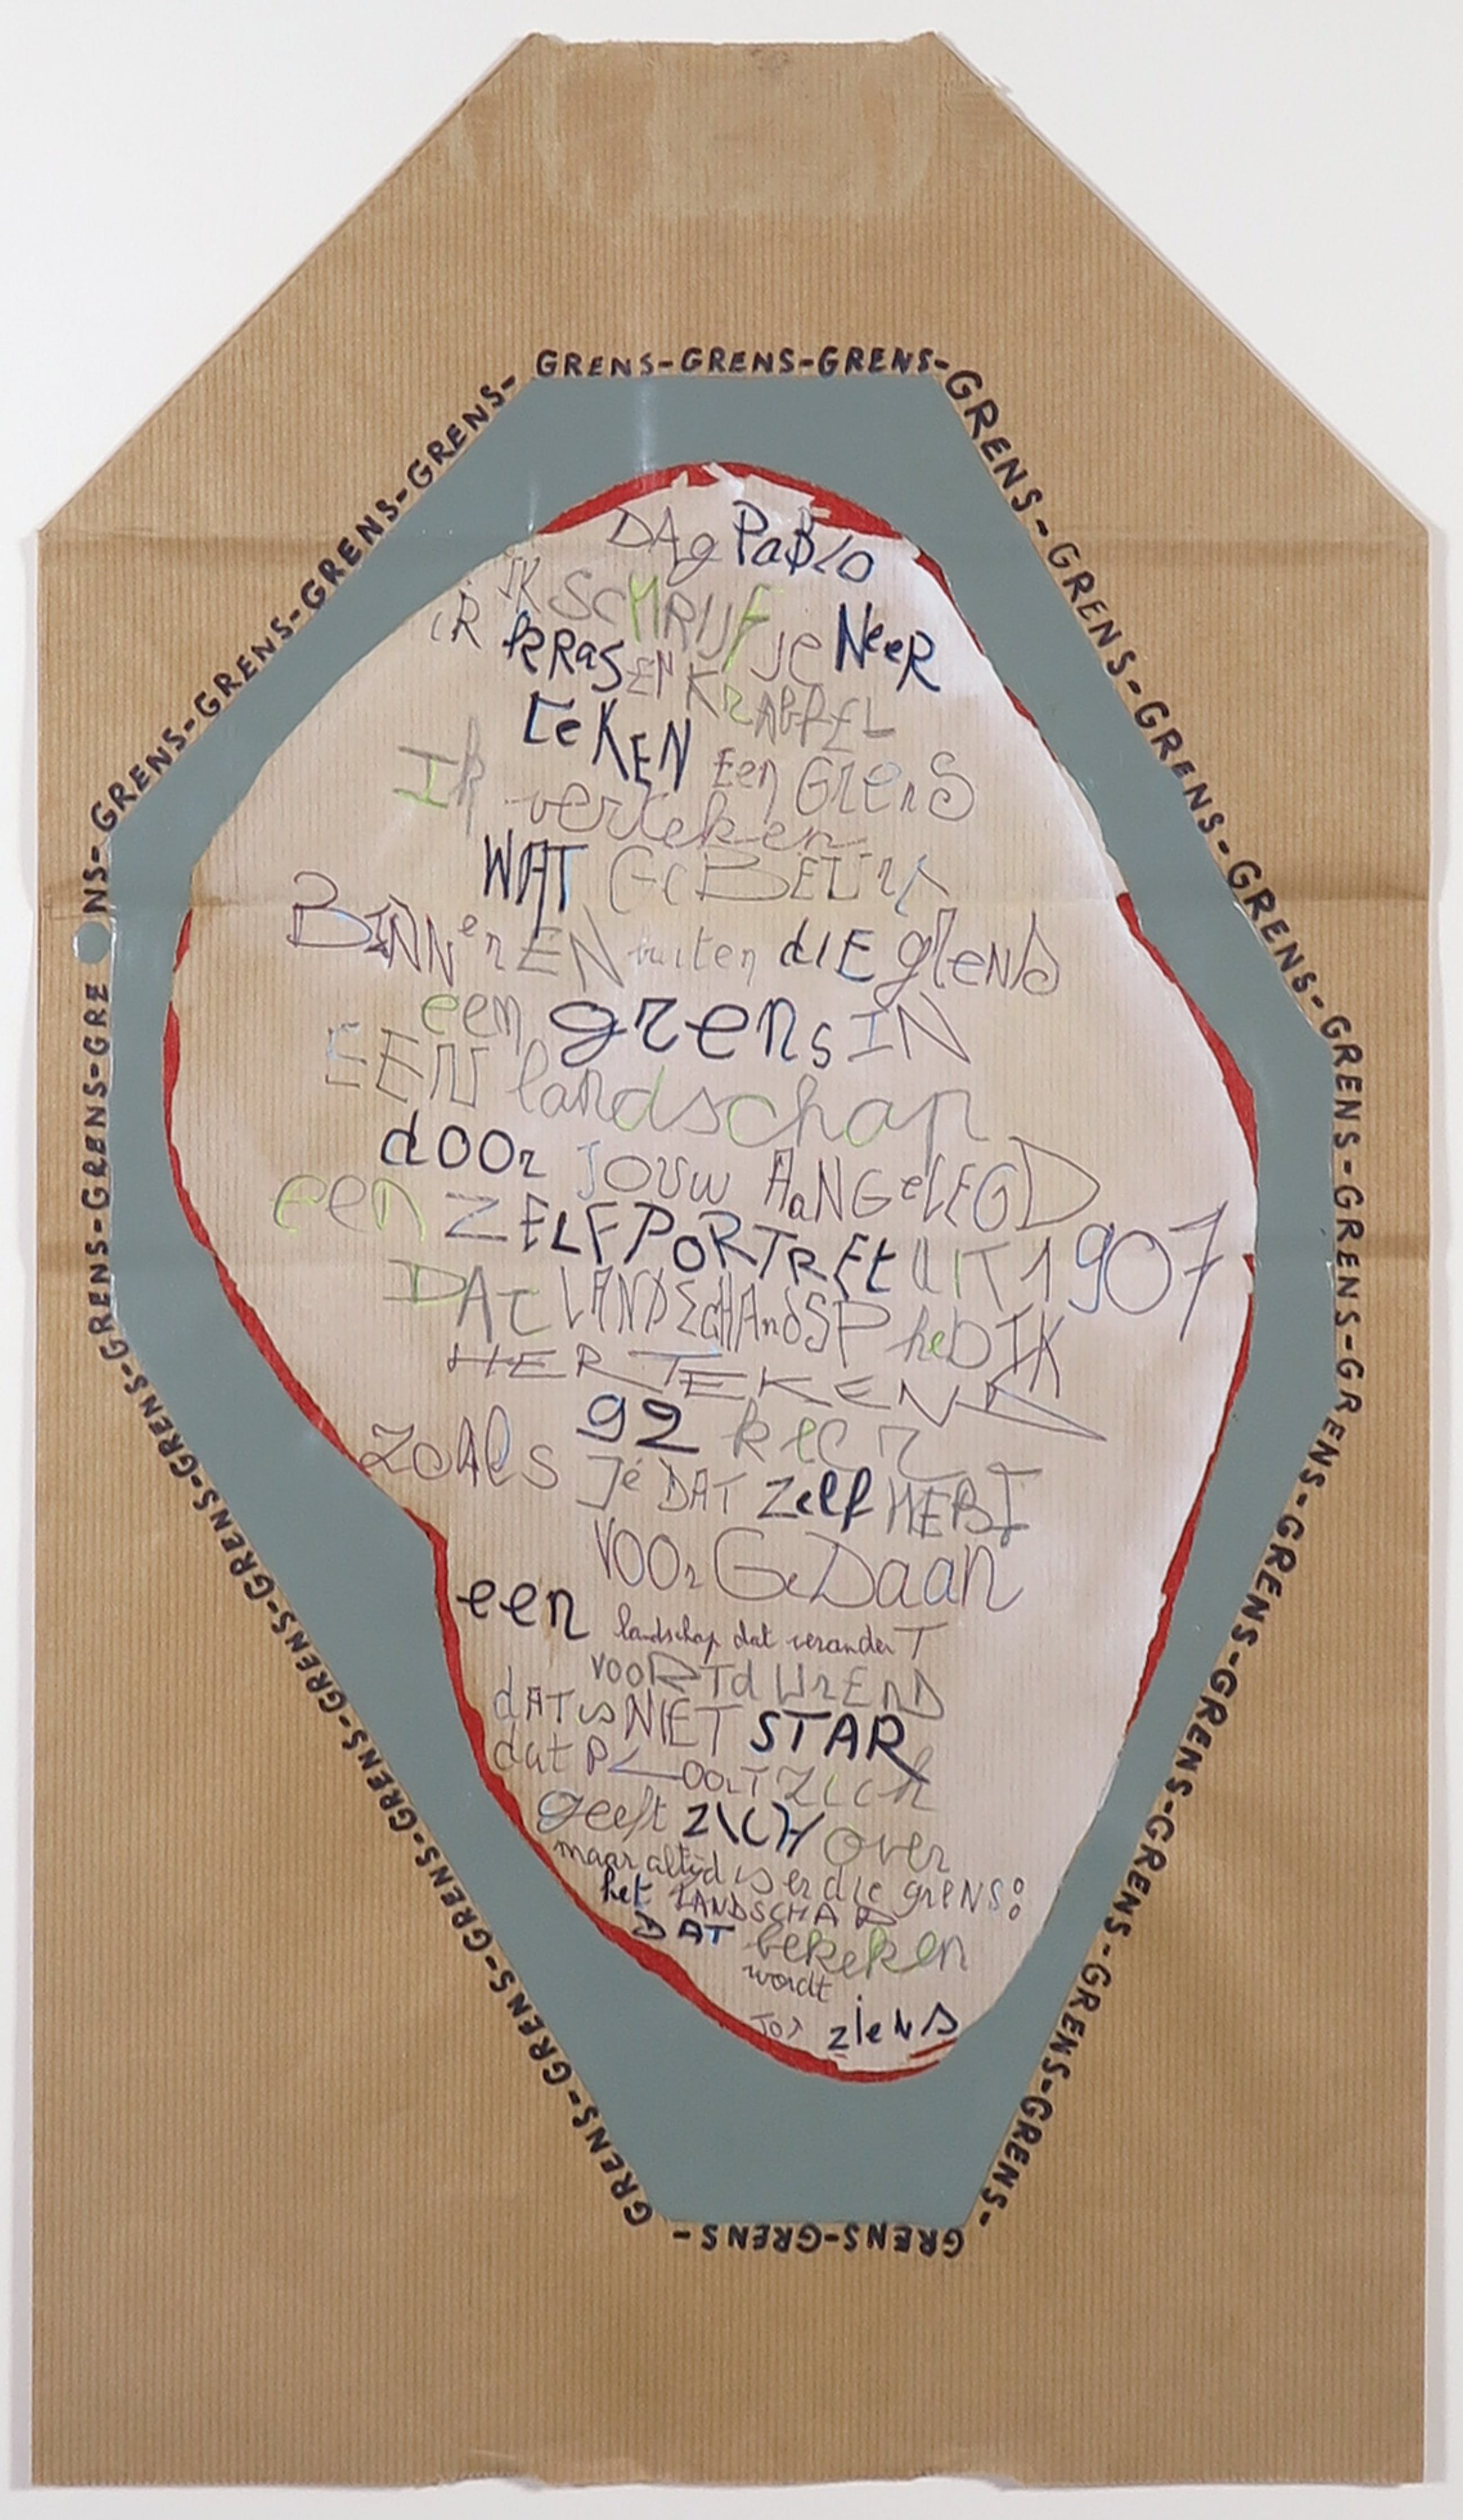 GRENS-GRENS-GRENS-GRENS-GRENS-GRENS-GRENS-GRENS-GRENS-GRENS-GRENS-GRENS-GRENS-GRENS-GRENS-GRENS-GRENS-GRENS-
GRENS-GRENS-
GRENS-GRENS-GRENS-GRENS-GRENS-GRENS-GRENS-GRENS-GRENS-GRENS-GRE NS-GRENS-GRENS-GRENS-GRENS-GRENS-
DAg PaBLO
IK SCHRIJF je NeeR
iK kRaS EN KrABBEL
teKEN Een GrenS
Ik verteken
WAT GeBEUrt
BINNen EN buiten dIE grens
een grens IN
EEN landschap
dOOr JOUw AaNGeLEGD
een ZELFPORTREt UIT 1907
DAt hebIK
HERTEKEND
92 keer
zoAls Je DAT Zelf HEBT
VOOr GeDaan
een landschap dat veranderT
vooRTdUrEnD
dAT is NIET STAR
dat PLOOiT Zich
geeft ZICH over
maar altijd is er die greNS:
het LANDSCHAP
DAT bekeken
wordt
TOT zieNS